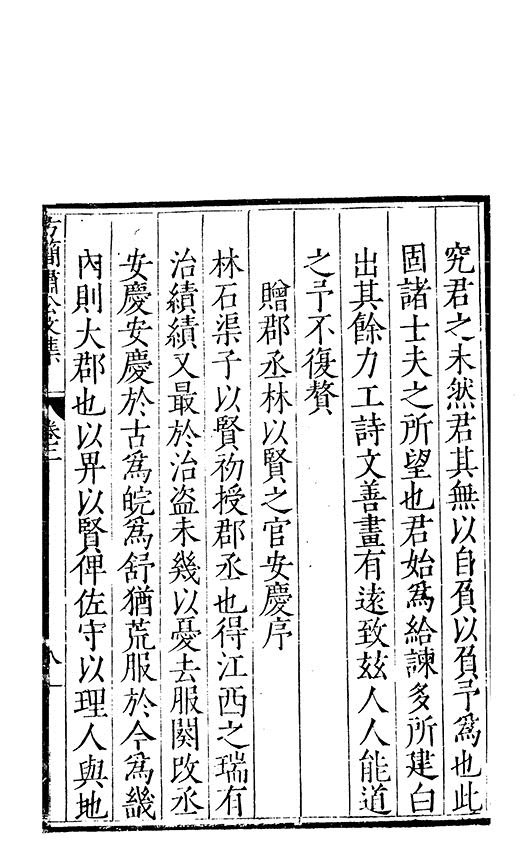 究君之未然君其無以自負以負予爲也此
固諸士夫之所望也君始爲給諫多所建白
出其餘力工詩文善畫有遠致玆人人能道
之予不復贅
贈郡丞林以賢之官安慶序
林石渠子以賢初授郡丞也得江西之瑞有
治績績又最於治盗未幾以憂去服闋改丞
安慶安慶於古爲皖爲舒猶荒服於今爲畿
內則大郡也以畀以賢俾佐守以理人與地
方簡肅公文集
卷三
八